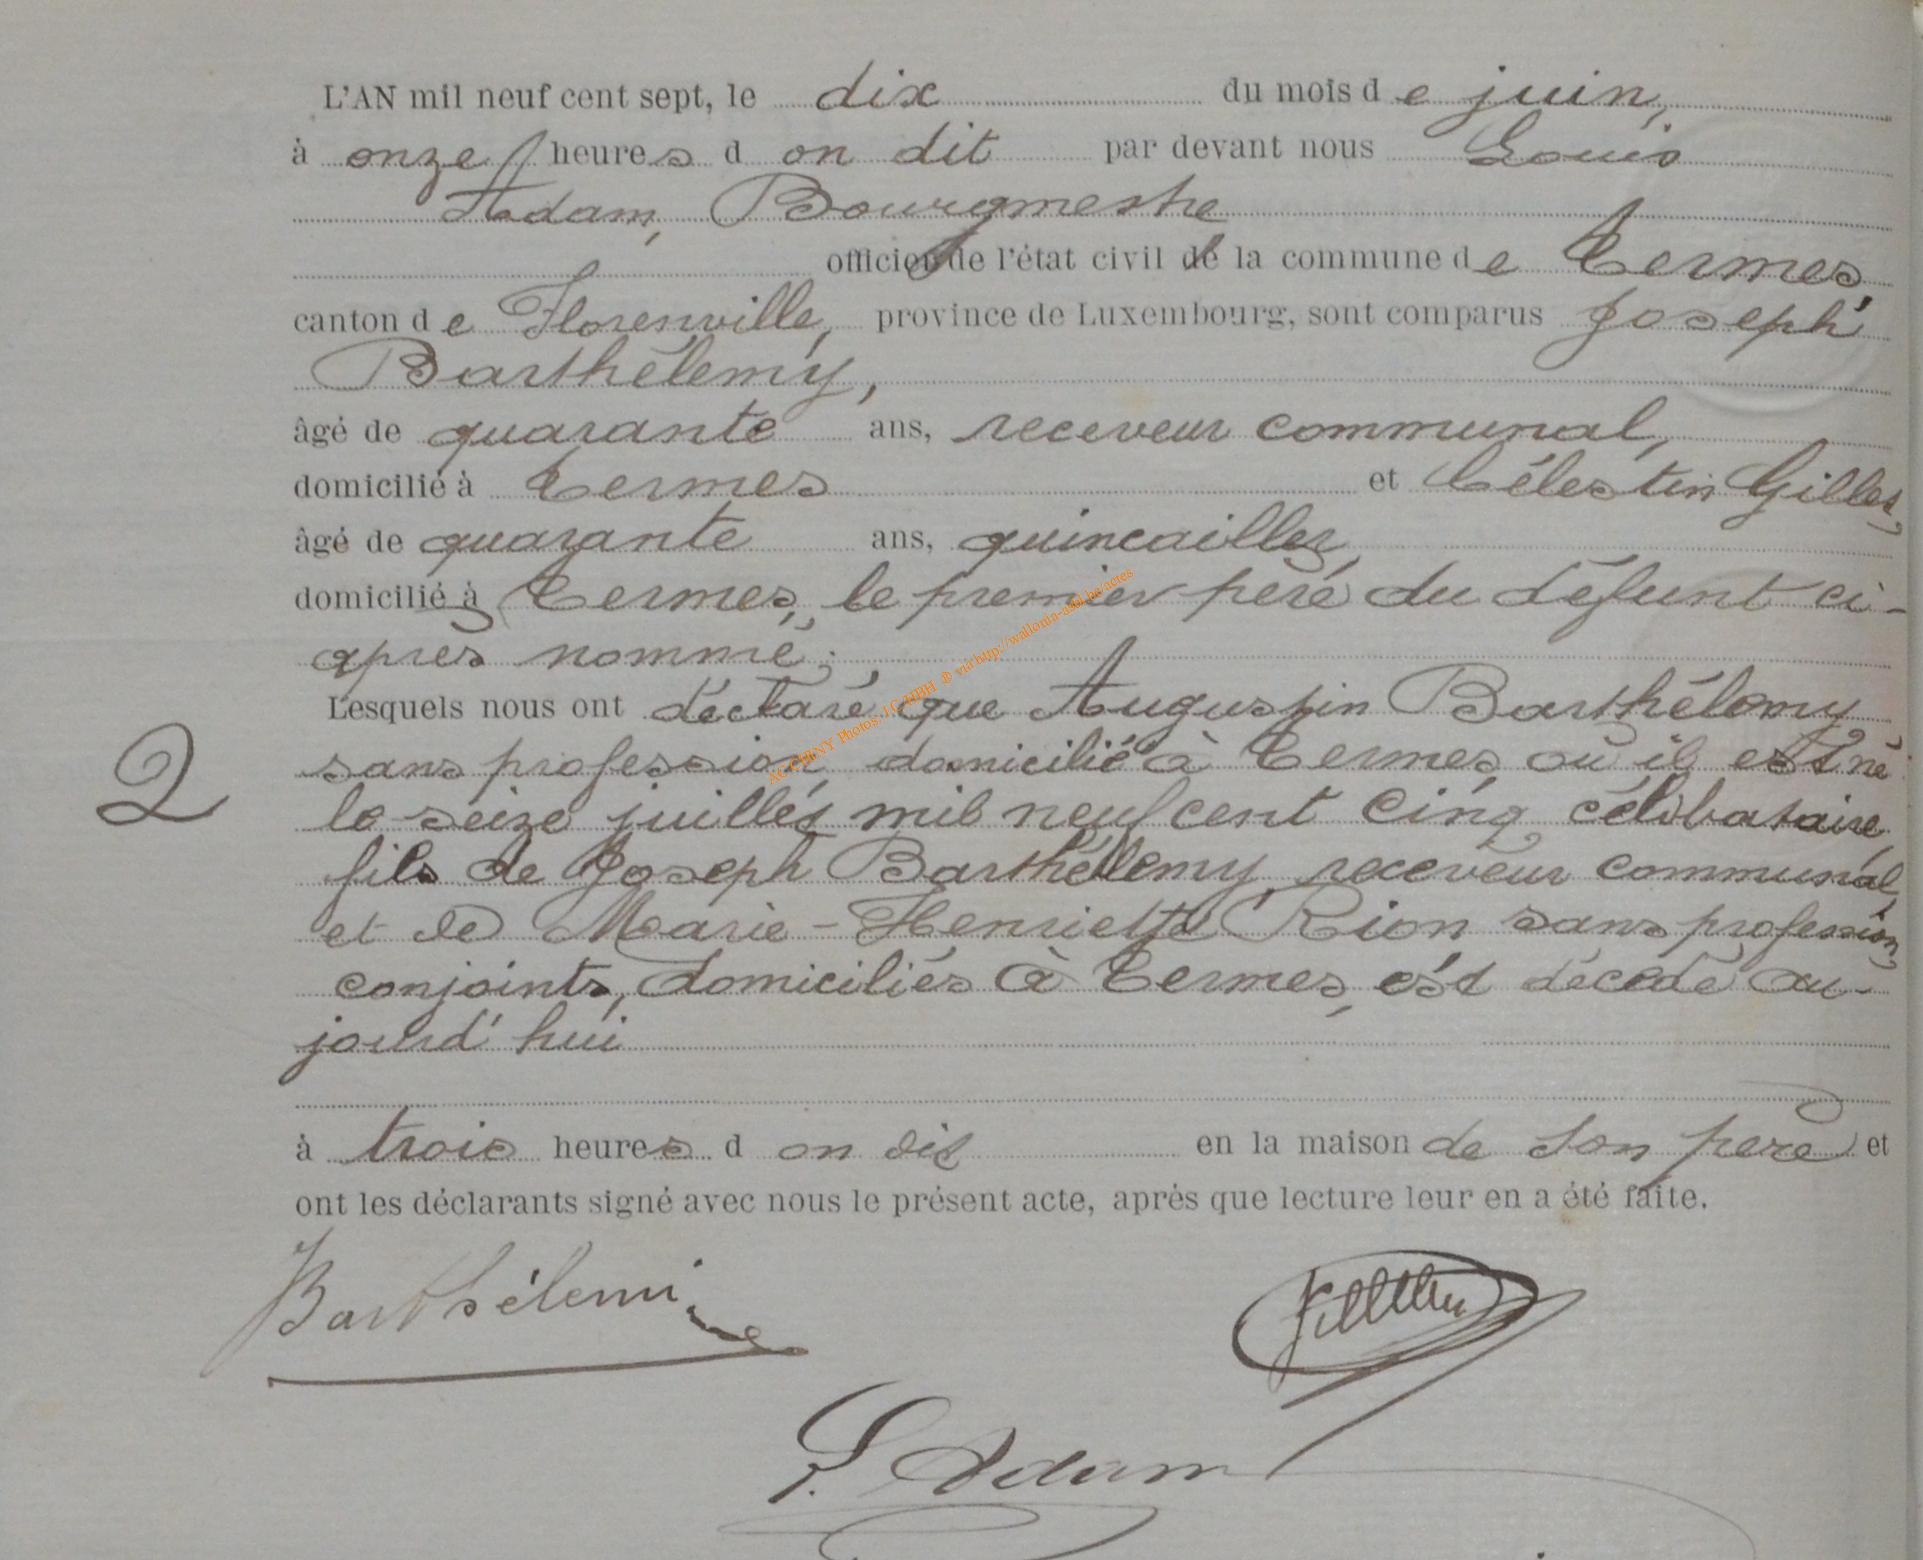 L'AN mil neuf cent sept, le dix du mois de juin,
à onze heures d on dit par devant nous Louis
Adam, Bourgmestre
officier de l'état civil de la commune de Termes,
canton de Florenville, province de Luxembourg, sont comparus Joseph
Barthélemy,
âgé de quarante ans, receveur communal,
domicilié à Termes et Célestin Gilles,
âgé de quarante ans, quincailler,
domicilié à Termes, le premier père du défunt ci-
après nommé;
Lesquels nous ont déclaré que Augustin Barthélemy
sans profession, domicilié à Termes, où il est né
le seize juillet mil neuf cent cinq célibataire,
fils de Joseph Barthélemy, receveur communal,
et de Marie-Henriette Rion sans profession,
conjoints, domiciliés à Termes, est décédé au-
jourd'hui
2
à trois heures d on dit en la maison de son père et
ont les déclarants signé avec nous le présent acte, après que lecture leur en a été faite.
Barthélemi
L. Adam
AC CHINY Photos JC HBH ® via http://wallonia-asbl.be/actes